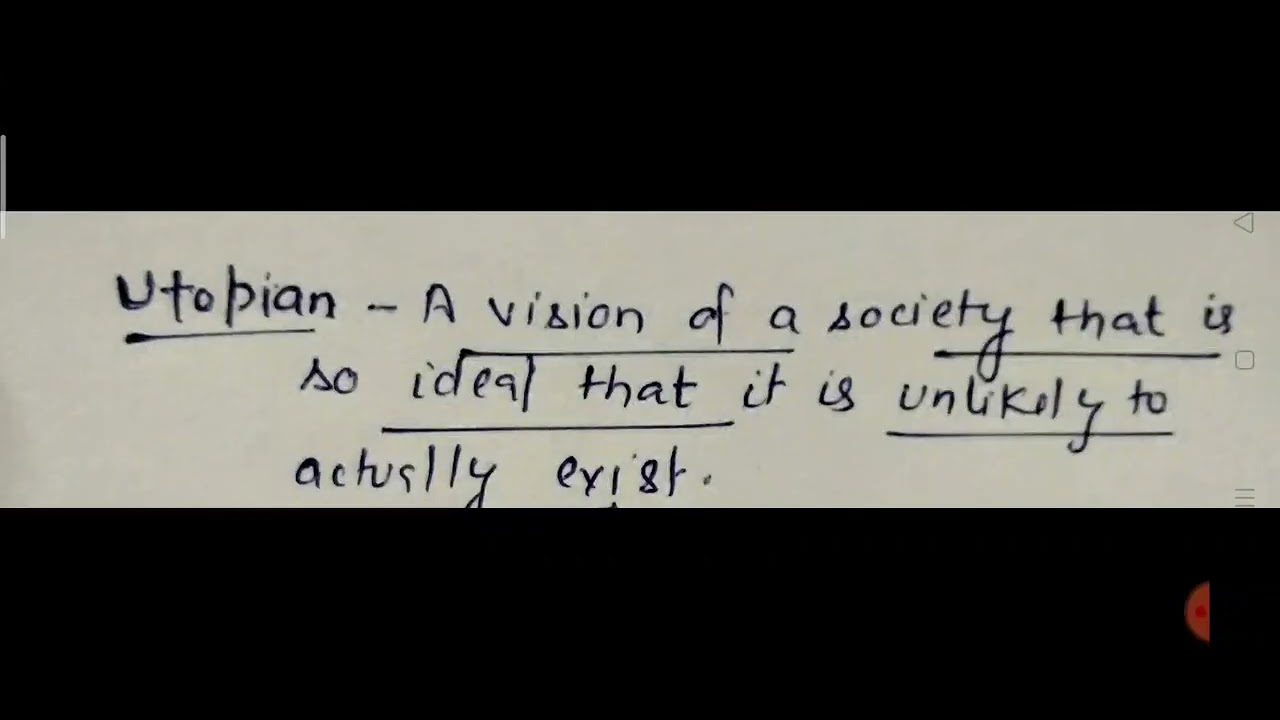 Utopian - A vision of a society that is
so ideal that it is unlikely to
actually exist.